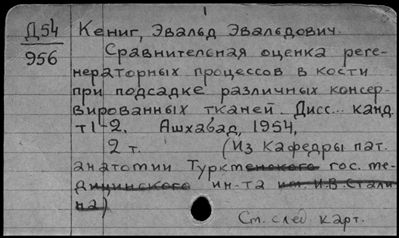 Д54
956
Кениг, Эвальд Эвальдович.
Сравнительная оценка реге-
нераторных процессов в кости
при подсадке различных консер-
вированных тканей. Дисс... канд
т 1-2. Ашхабад, 1954,
2 т. (Из кафедры пат.
анатомии Туркменского гос. ме-
дицинского ин-та им. И.В. Стали
на)
См. след карт.